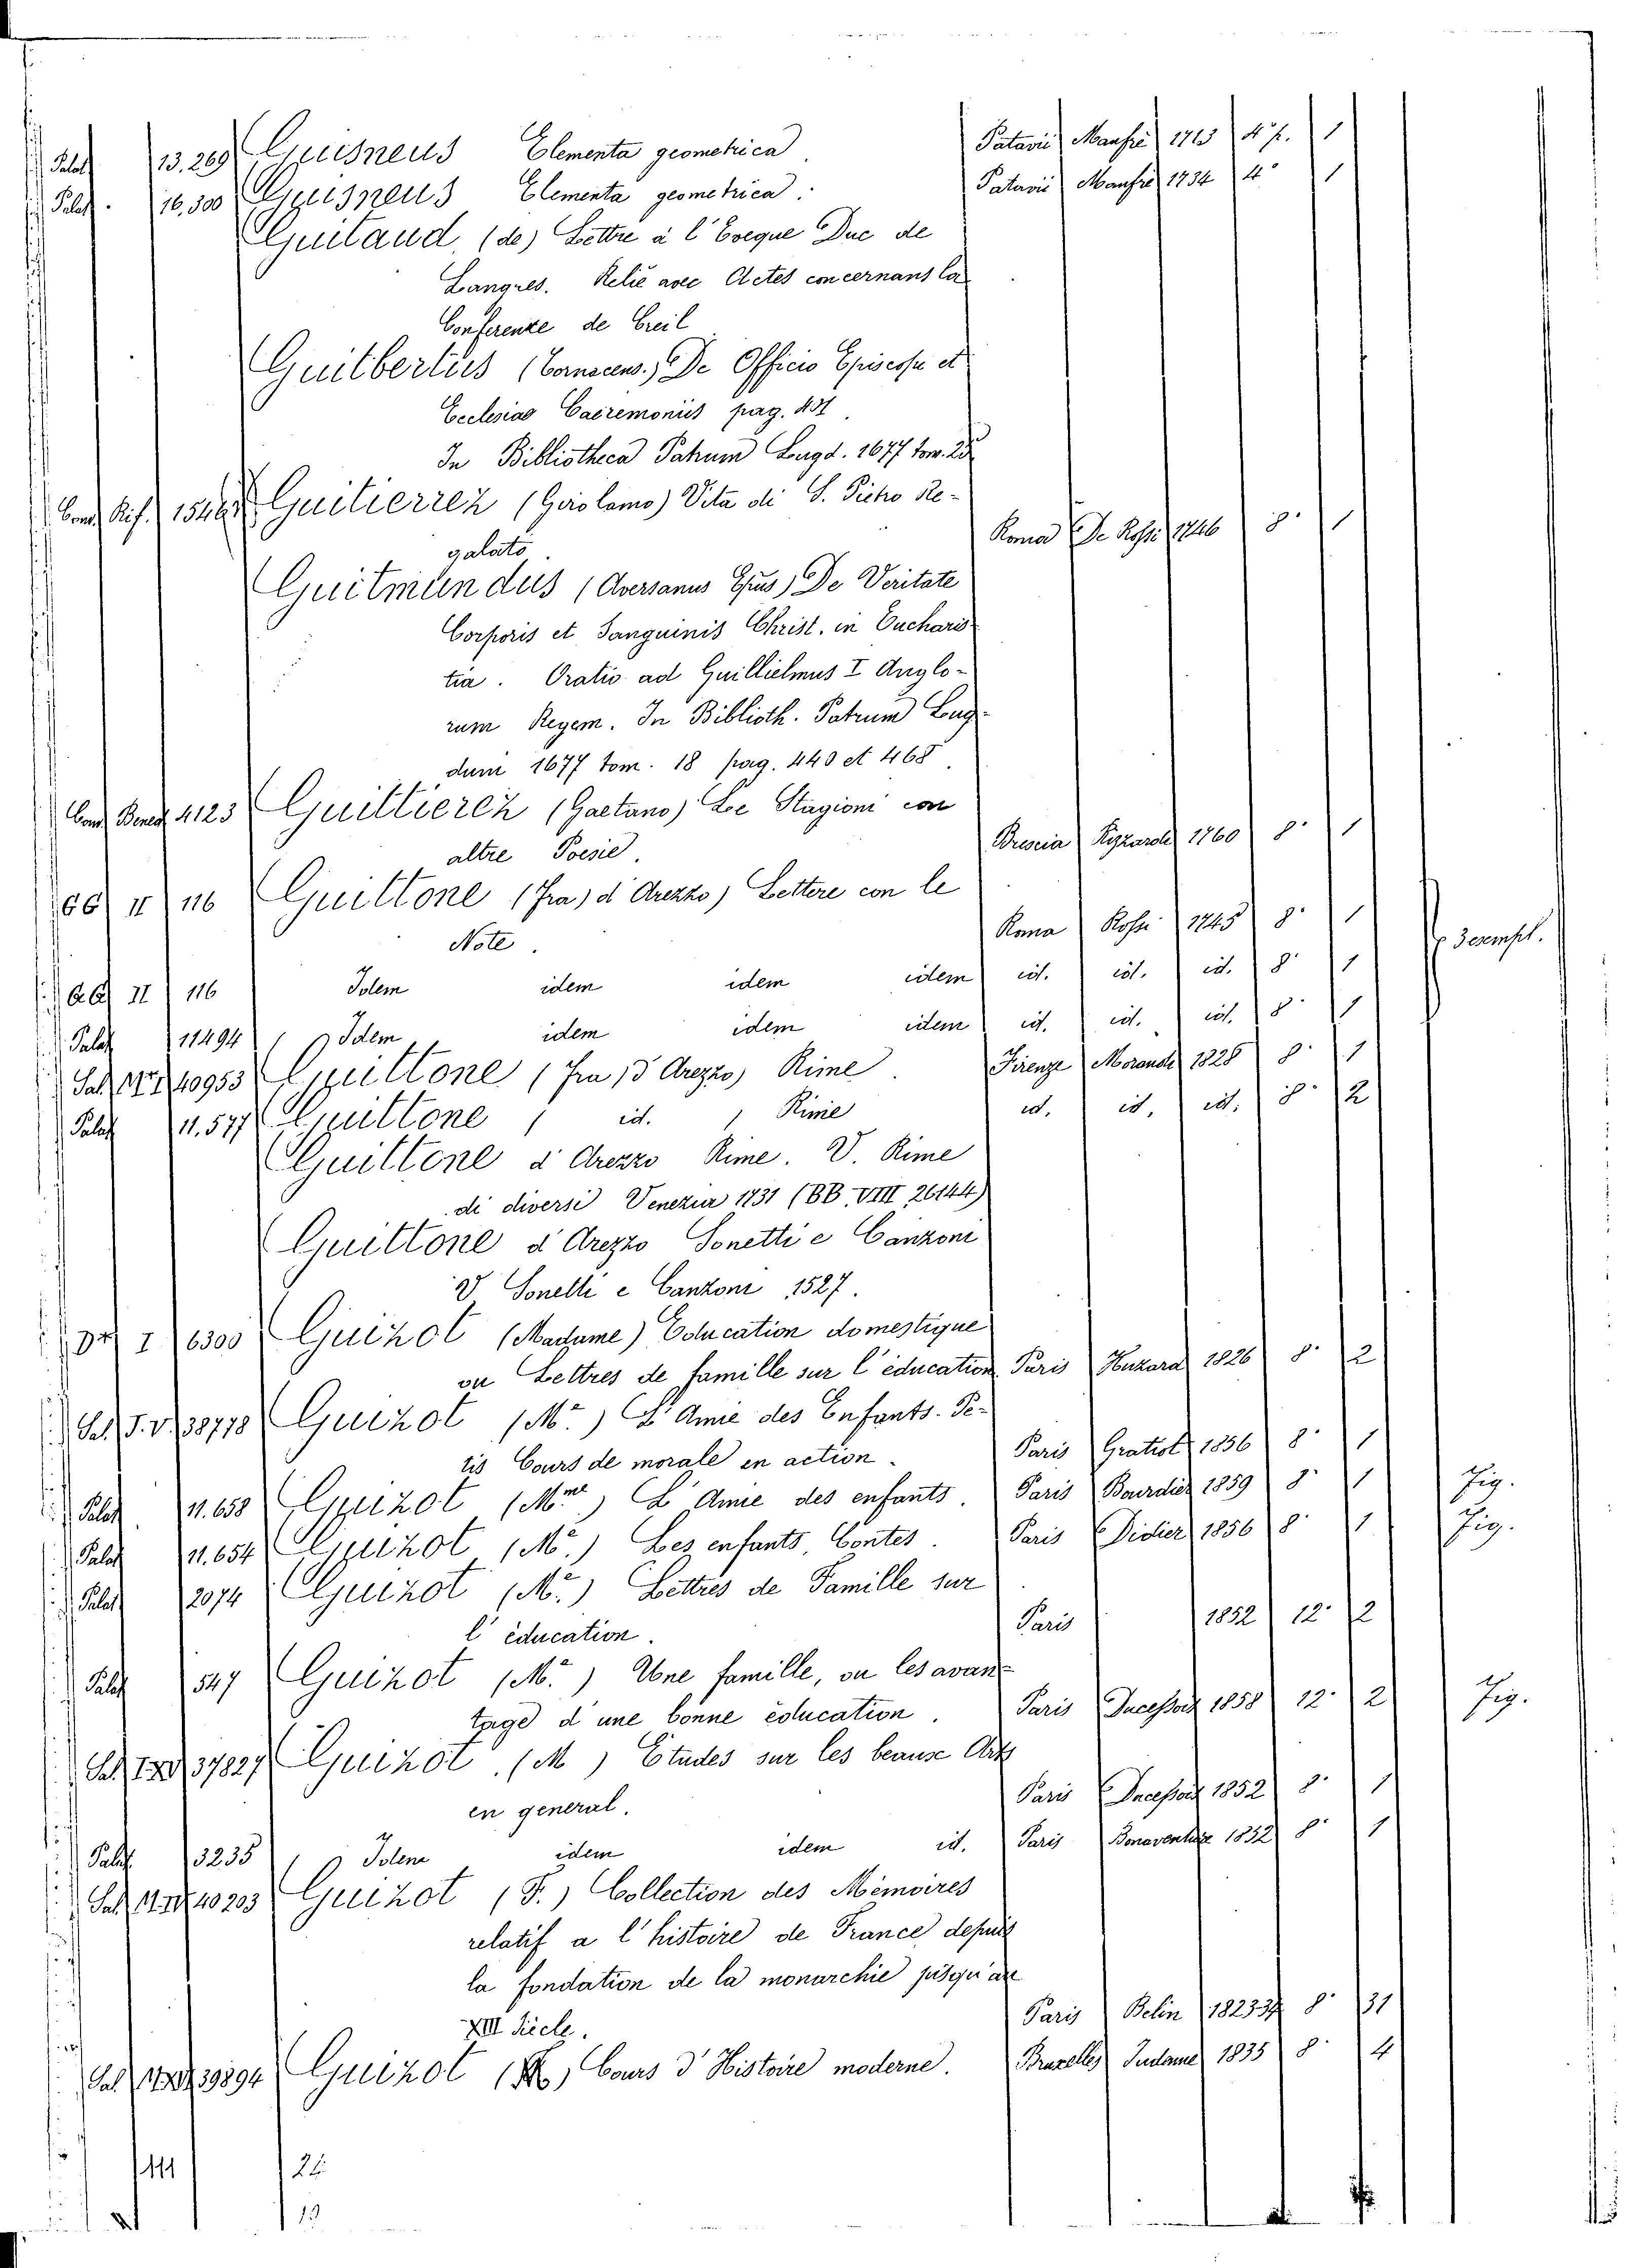 Palat. 13.269 Guisneus Elementa geometrica Patavii Manfrè 1713 4° p. 1
Palat. 16,300 Guisneus Elementa geometrica: Patavii Manfrè 1734 4° 1
Guitaud (de) Lettre à l'Eveque Duc de
Langres. Relié avec Actes concernans la
Conference de Creil
Guitbertus (Tornacens.) De Officio Episcopi et
Ecclesiae Caeremoniis pag. 401
In Bibliotheca Patrum Lugd. 1677 tom. 25
Cond. Rif. Guitierrez (Girolamo) Vita di S. Pietro Re-
galato Roma De Rossi 1746 8° 1
Guitmundus (Aversanus Epus) De Veritate
Corporis et Sanguinis Christ. in Eucharis
tia. Oratio ad Guillielmus I Anglo-
rum Regem. In Biblioth. Patrum Lug-
duni 1677 tom. 18 pag. 440 et 468
Cond. Bened. 4123 Guittierez (Gaetano) Le Stagioni con
altre Poesie. Brescia Rizzardi 1760 8° 1
GG II 116 Guittone (Fra) d'Arezzo) Lettere con le
Note. Roma Rossi 1745 8° 1 3 esempl.
GG II 116 Idem idem idem idem id. id. id. 8° 1
Palat. 11494 Idem idem idem idem id. id. id. 8° 1
40953 Guittone (Fra) D'Arezzo) Rime. Firenze Morandi 1828 8° 1
Palat. 11.577 Guittone ( id. ) Rime id. id. id. 8° 2
Guittone d'Arezzo Rime. V. Rime
di diversi Venezia 1731 (BB. VIII 26144)
Guittone d'Arezzo Sonetti e Canzoni
V Sonetti e Canzoni 1527.
I 6300 Guizot (Madame) Education domestique
ou Lettres de famille sur l'éducation Paris Huzard 1826 8° 2
Sal. T. V. 38778 Guizot (Me) L'Amie des Enfants. Pe-
tis Cours de morale en action. Paris Gratiot 1856 8° 1
Palat. 11.658 Guizot (Mme) L'Amie des enfants. Paris Bourdier 1859 8° 1 Fig.
Palat. 11.654 Guizot (Me) Les enfants, Contes. Paris Didier 1856 8° 1 Fig.
Palat. 2074 Guizot (Me) Lettres de Famille sur
l'éducation. Paris 1852 12° 2
Palat. 547 Guizot (Me) Une famille, ou les avan-
tage d'une bonne éducation. Paris Ducessois 1858 12° 2 Fig.
Sal. 37827 Guizot. (M ) Etudes sur les beause Arts
en general. Paris Ducessois 1852 8° 1
Palat. 3235 Idem idem idem id. Paris Bonaventure 1852 8° 1
Sal. 40203 Guizot (F.) Collection des Mémoires
relatif a l'histoire de France depuis
la fondation de la monarchie jusqu'au
XIII Siecle. Paris Belin 8° 31
Sal. 39894 Guizot ( ) Cours d'Histoire moderne. Bruxelles 1835 8° 4
111 22
13